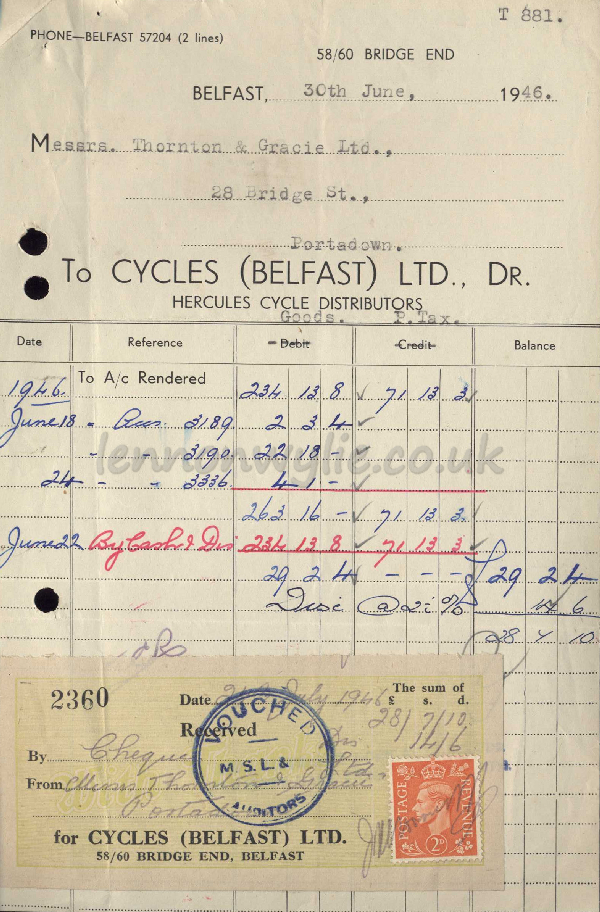 T 881.
PHONE—BELFAST 57204 (2 lines)
58/60 BRIDGE END
BELFAST, 30th June, 1946.
Messrs. Thornton & Gracie Ltd.,
28 Bridge St.,
Portadown.
To CYCLES (BELFAST) LTD., DR.
HERCULES CYCLE DISTRIBUTORS
Goods. P.Tax.
Date Reference Debit Credit Balance
1946 To A/c Rendered 234 13 8 71 13 3
June 18 " 3189 2 3 4
" " 3190 22 18 -
24 " " 3336 4 1 -
263 16 - 71 13 3
June 22 By Cash & Dis 234 13 8 71 13 3
29 2 4 - - - 29 2 4
Disc @ 2½ % 14 6
28 7 10
lennonwylie.co.uk
2360 Date July 1946 The sum of
£ s. d.
Received 28/7/10
Dis 14/6
By Cheque
From Messrs Thornton & Gracie Ltd
for CYCLES (BELFAST) LTD.
58/60 BRIDGE END, BELFAST
VOUCHED
M.S.L.&
AUDITORS
POSTAGE REVENUE
2D